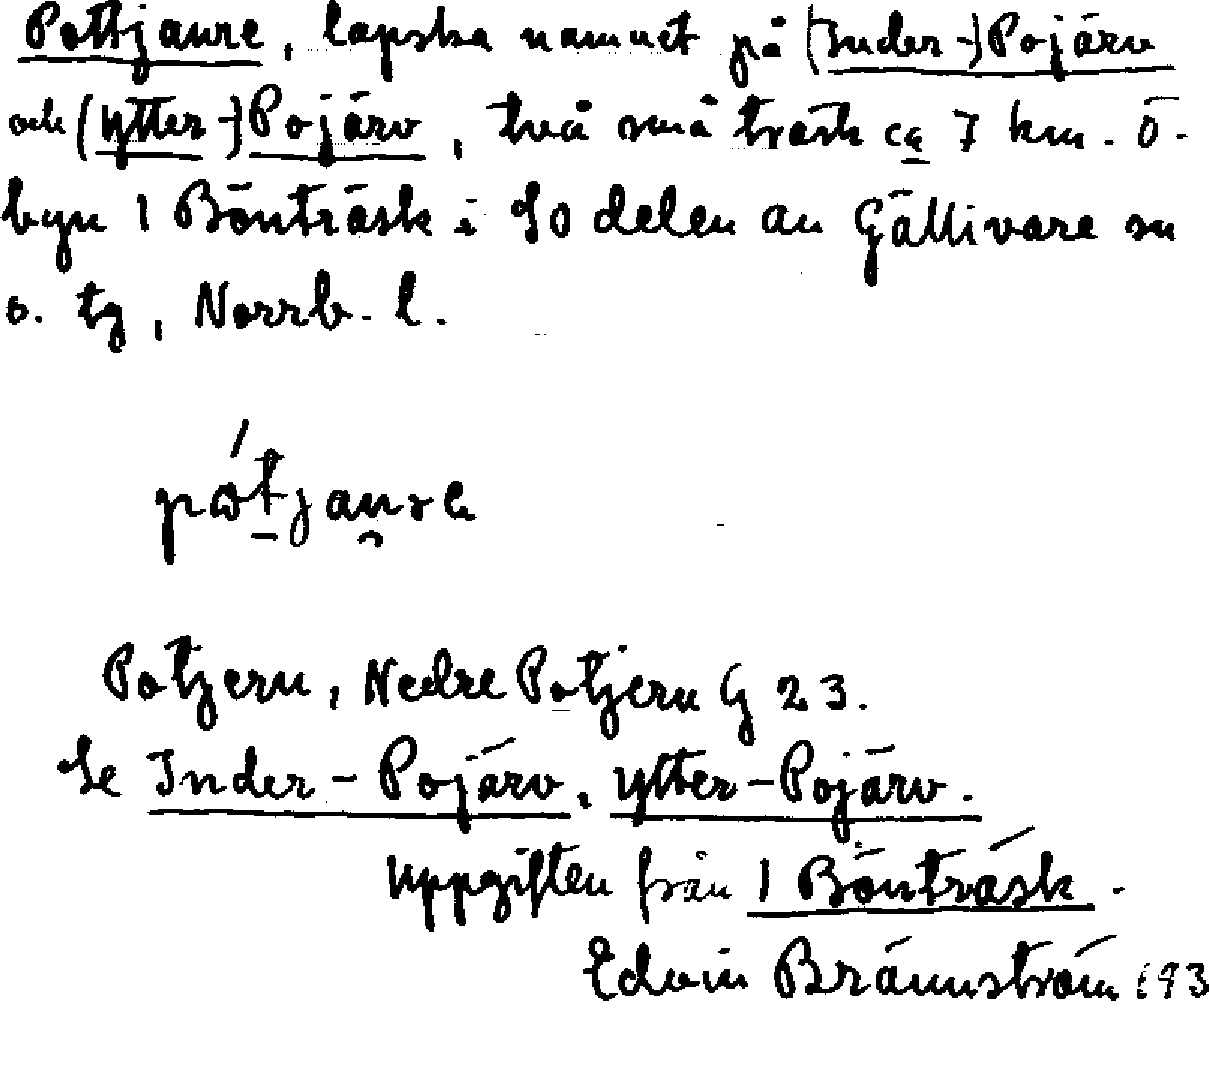 Pottjaure, lapska namnet på (Inder-)Pojärv
och (Ytter-)Pojärv, två små träsk ca 7 km. ö.
byn 1 Bönträsk i SO delen av Gällivare sn
o. tg, Norrb. l.
Potzeru, Nedre Potjeru G 23.
Se Inder-Pojärv, Ytter-Pojärv.
Uppgiften från 1 Bönträsk.
Edvin Brännström